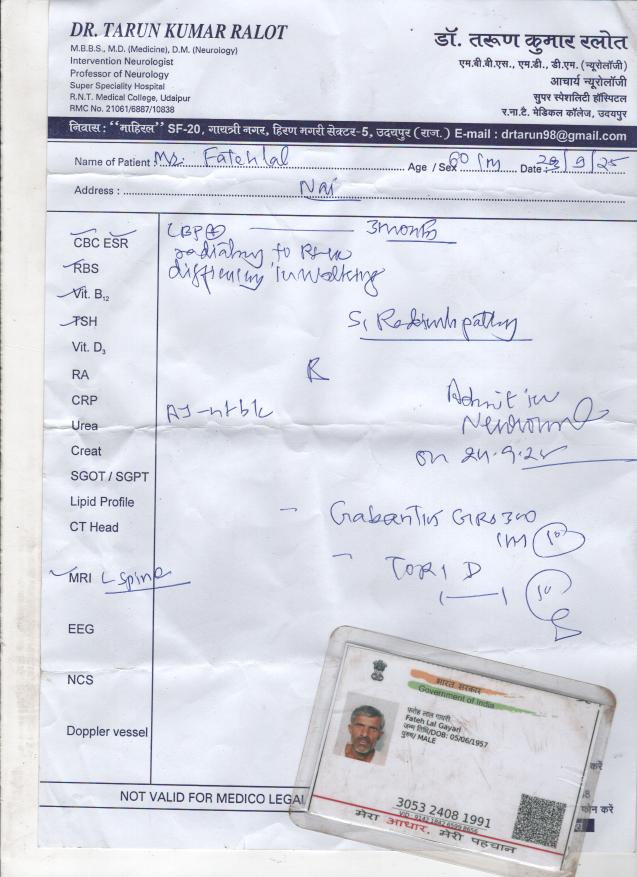 DR. TARUN KUMAR RALOT
M.B.B.S., M.D. (Medicine), D.M. (Neurology)
Intervention Neurologist
Professor of Neurology
Super Speciality Hospital
R.N.T. Medical College, Udaipur
RMC No. 21061/6887/10838
डॉ. तरूण कुमार रलोत
एम.बी.बी.एस., एम.डी., डी.एम. (न्यूरोलॉजी)
आचार्य न्यूरोलॉजी
सुपर स्पेशलिटी हॉस्पिटल
र.ना.टै. मेडिकल कॉलेज, उदयपुर
निवास : "माहिरल" SF-20, गायत्री नगर, हिरण मगरी सेक्टर-5, उदयपुर (राज.) E-mail : drtarun98@gmail.com
Name of Patient : Mr. Fatehlal Age / Sex 60 Date : /9/25
Address : Nai
CBC ESR
RBS
Vit. B12
TSH
Vit. D3
RA
CRP
Urea
Creat
SGOT / SGPT
Lipid Profile
CT Head
MRI L spine
EEG
NCS
Doppler vessel
LBP 3months
radiating to
difficulty in walking
S1
R
Admit in
on
300
1m 10
D
10
NOT VALID FOR MEDICO LEGAL
भारत सरकार
Government of India
फतेह लाल गायरी
Fateh Lal Gayari
जन्म तिथि/DOB: 05/06/1957
पुरुष/ MALE
3053 2408 1991
मेरा आधार, मेरी पहचान
करें
फोन करें